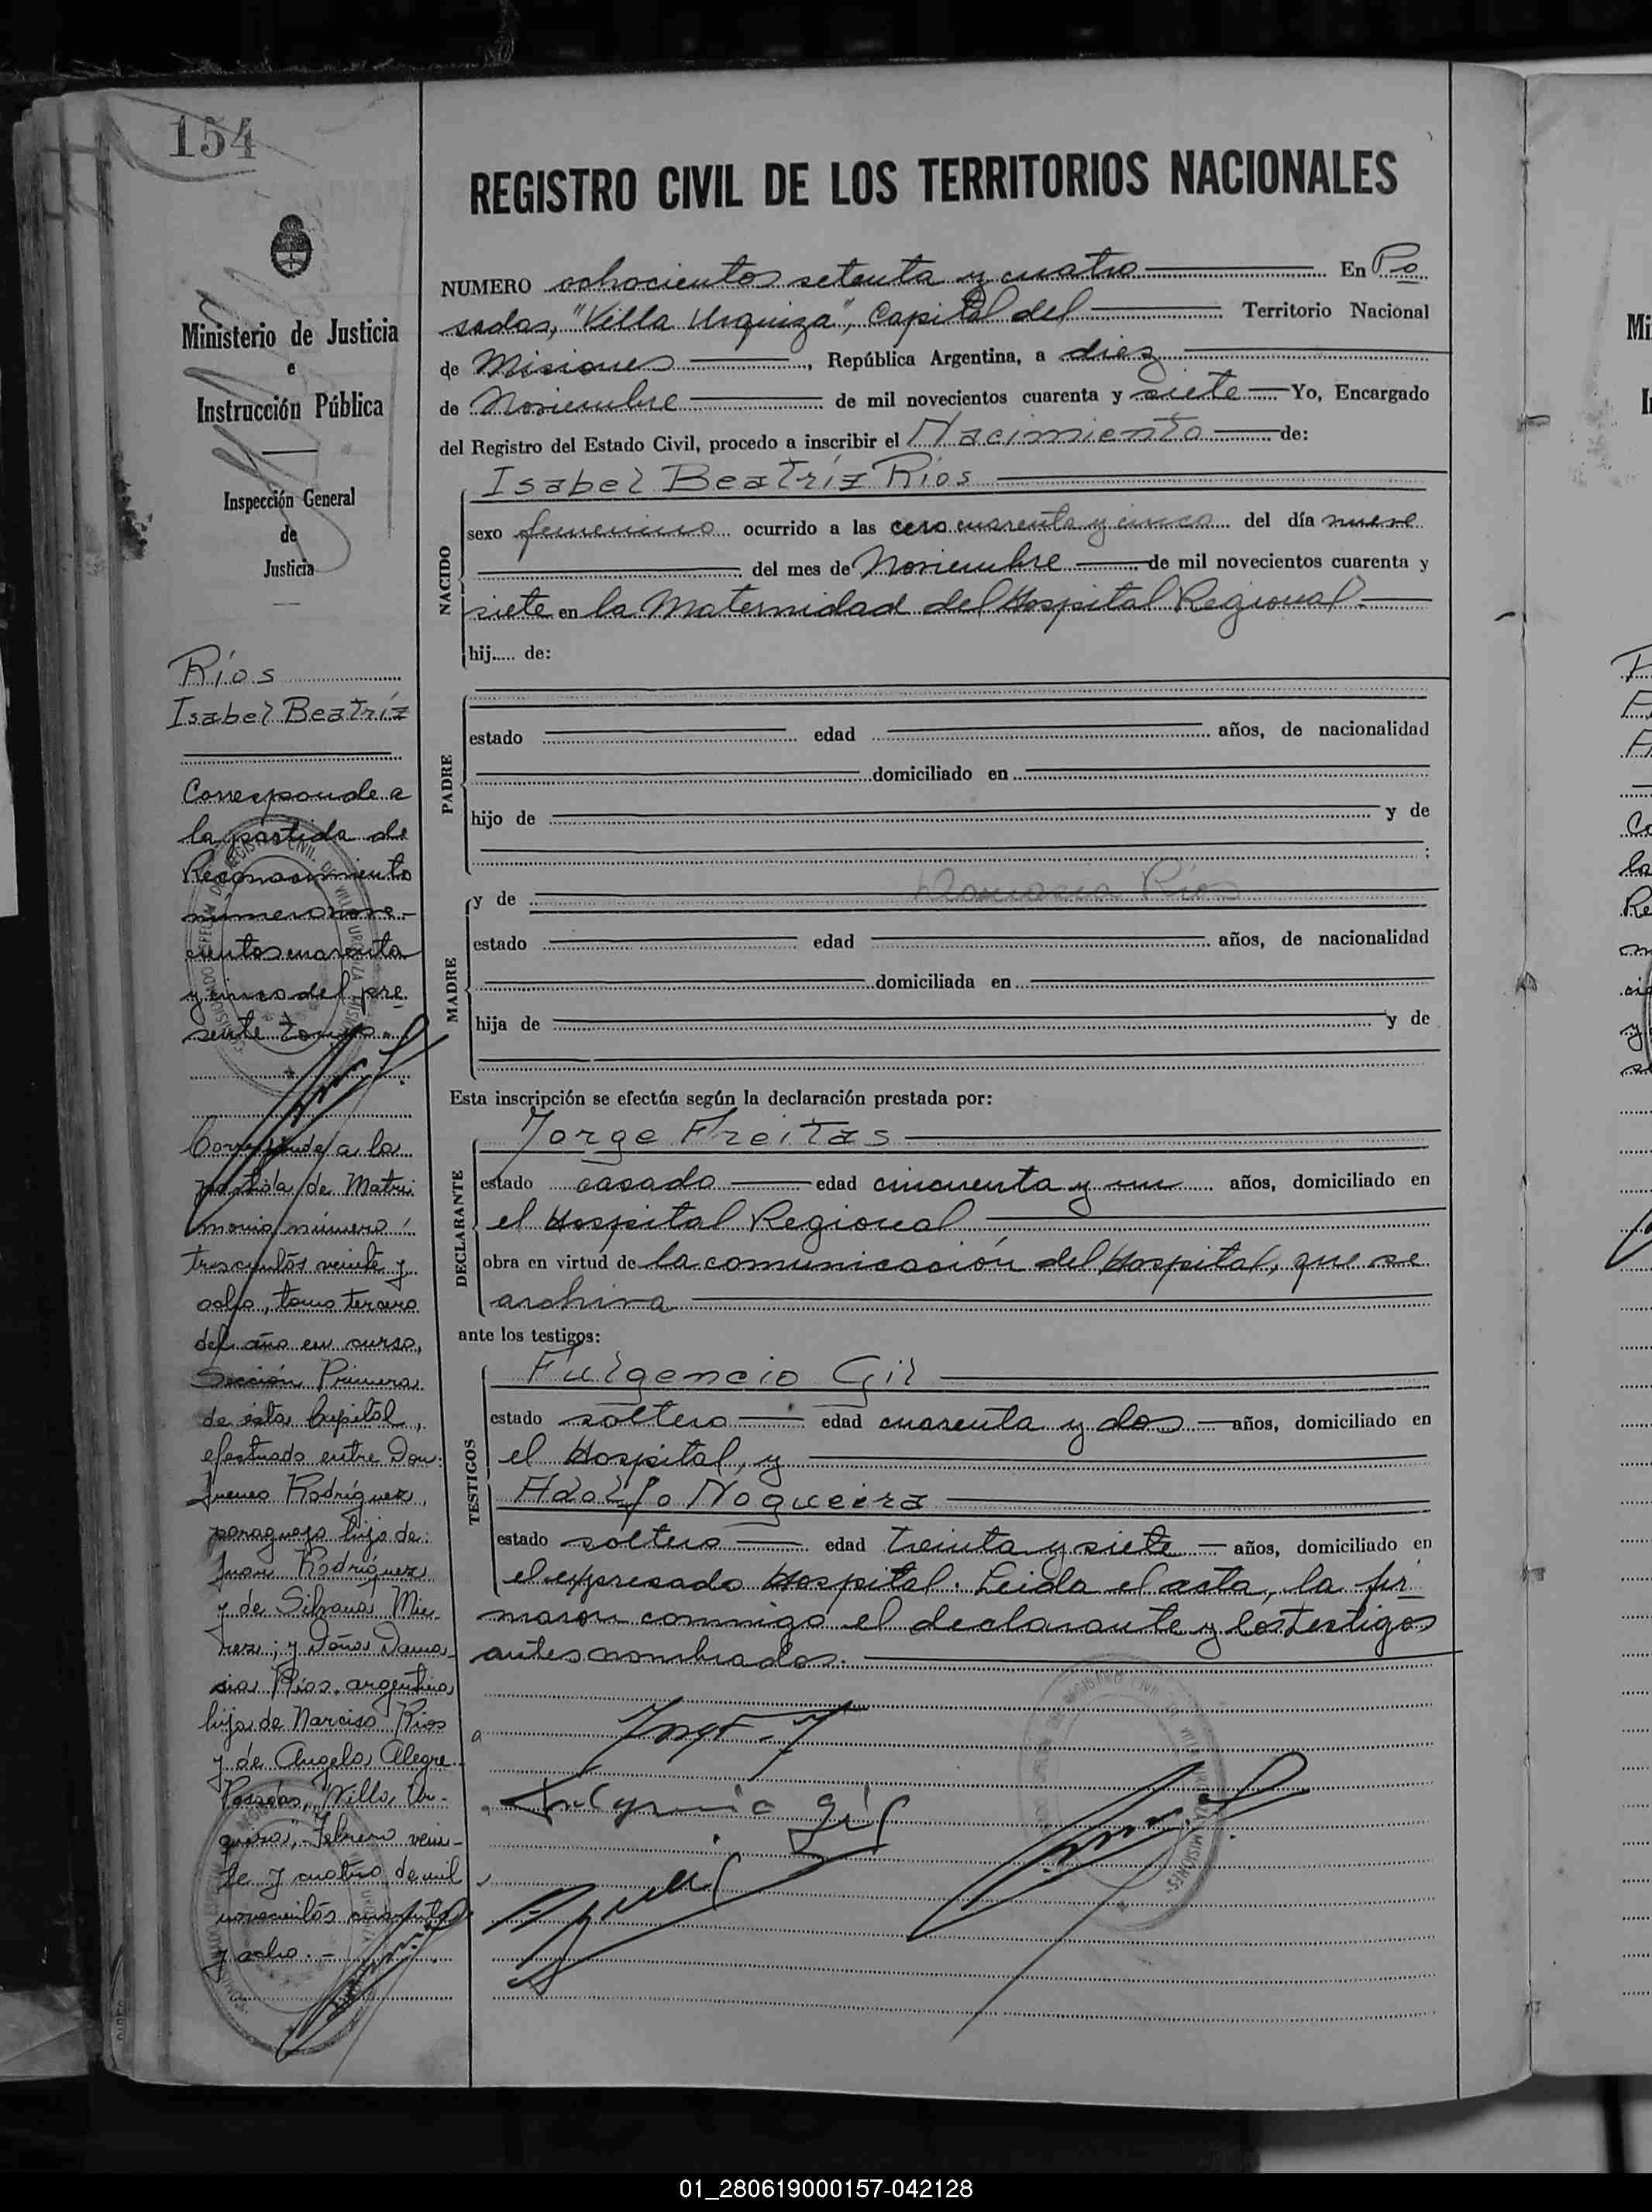 154
REGISTRO CIVIL DE LOS TERRITORIOS NACIONALES
Ministerio de Justicia
e
Instrucción Pública
Inspección General
de
Justicia
Ríos
Isabel Beatríz
Corresponde a
la partida de
Reconocimiento
número nove-
cientos cuarenta
y cinco del pre-
sente tomo.-
Corresponde a la
partida de Matri
monio número:
trescientos veinte y
ocho, tomo tercero
del año en curso,
Sección Primera
de ésta Capital,
efectuado entre Don:
Ireneo Rodríguez,
paraguayo hijo de:
Juan Rodríguez
y de Silvana
y Doña Dama-
sia Ríos, argentina
hija de Narciso Ríos
y de Angela Alegre.
Posadas, "Villa Ur-
quiza", Febrero vein-
te y cuatro de mil
novecientos cuarenta
y ocho.-
NUMERO ochocientos setenta y cuatro En Po
sadas, "Villa Urquiza", Capital del Territorio Nacional
de Misiones, República Argentina, a diez
de Noviembre de mil novecientos cuarenta y siete Yo, Encargado
del Registro del Estado Civil, procedo a inscribir el Nacimiento de:
NACIDO
Isabel Beatríz Ríos
sexo femenino ocurrido a las cero cuarenta y cinco del día nueve
del mes de Noviembre de mil novecientos cuarenta y
siete en la Maternidad del Hospital Regional.
hij..... de:
PADRE
estado edad años, de nacionalidad
domiciliado en
hijo de y de
:
MADRE
y de Damacia Ríos
estado edad años, de nacionalidad
domiciliada en
hija de y de
Esta inscripción se efectúa según la declaración prestada por:
DECLARANTE
Jorge Freitas
estado casado edad cincuenta y un años, domiciliado en
el Hospital Regional
obra en virtud de la comunicación del Hospital, que se
archiva
ante los testigos:
TESTIGOS
Fulgencio Gil
estado soltero edad cuarenta y dos años, domiciliado en
el Hospital, y
Adolfo Nogueira
estado soltero edad treinta y siete años, domiciliado en
el expresado Hospital. Leida el acta, la fir
maron conmigo el declarante y los testigos
antes nombrados.
Fulgencio Gil
01_280619000157-042128